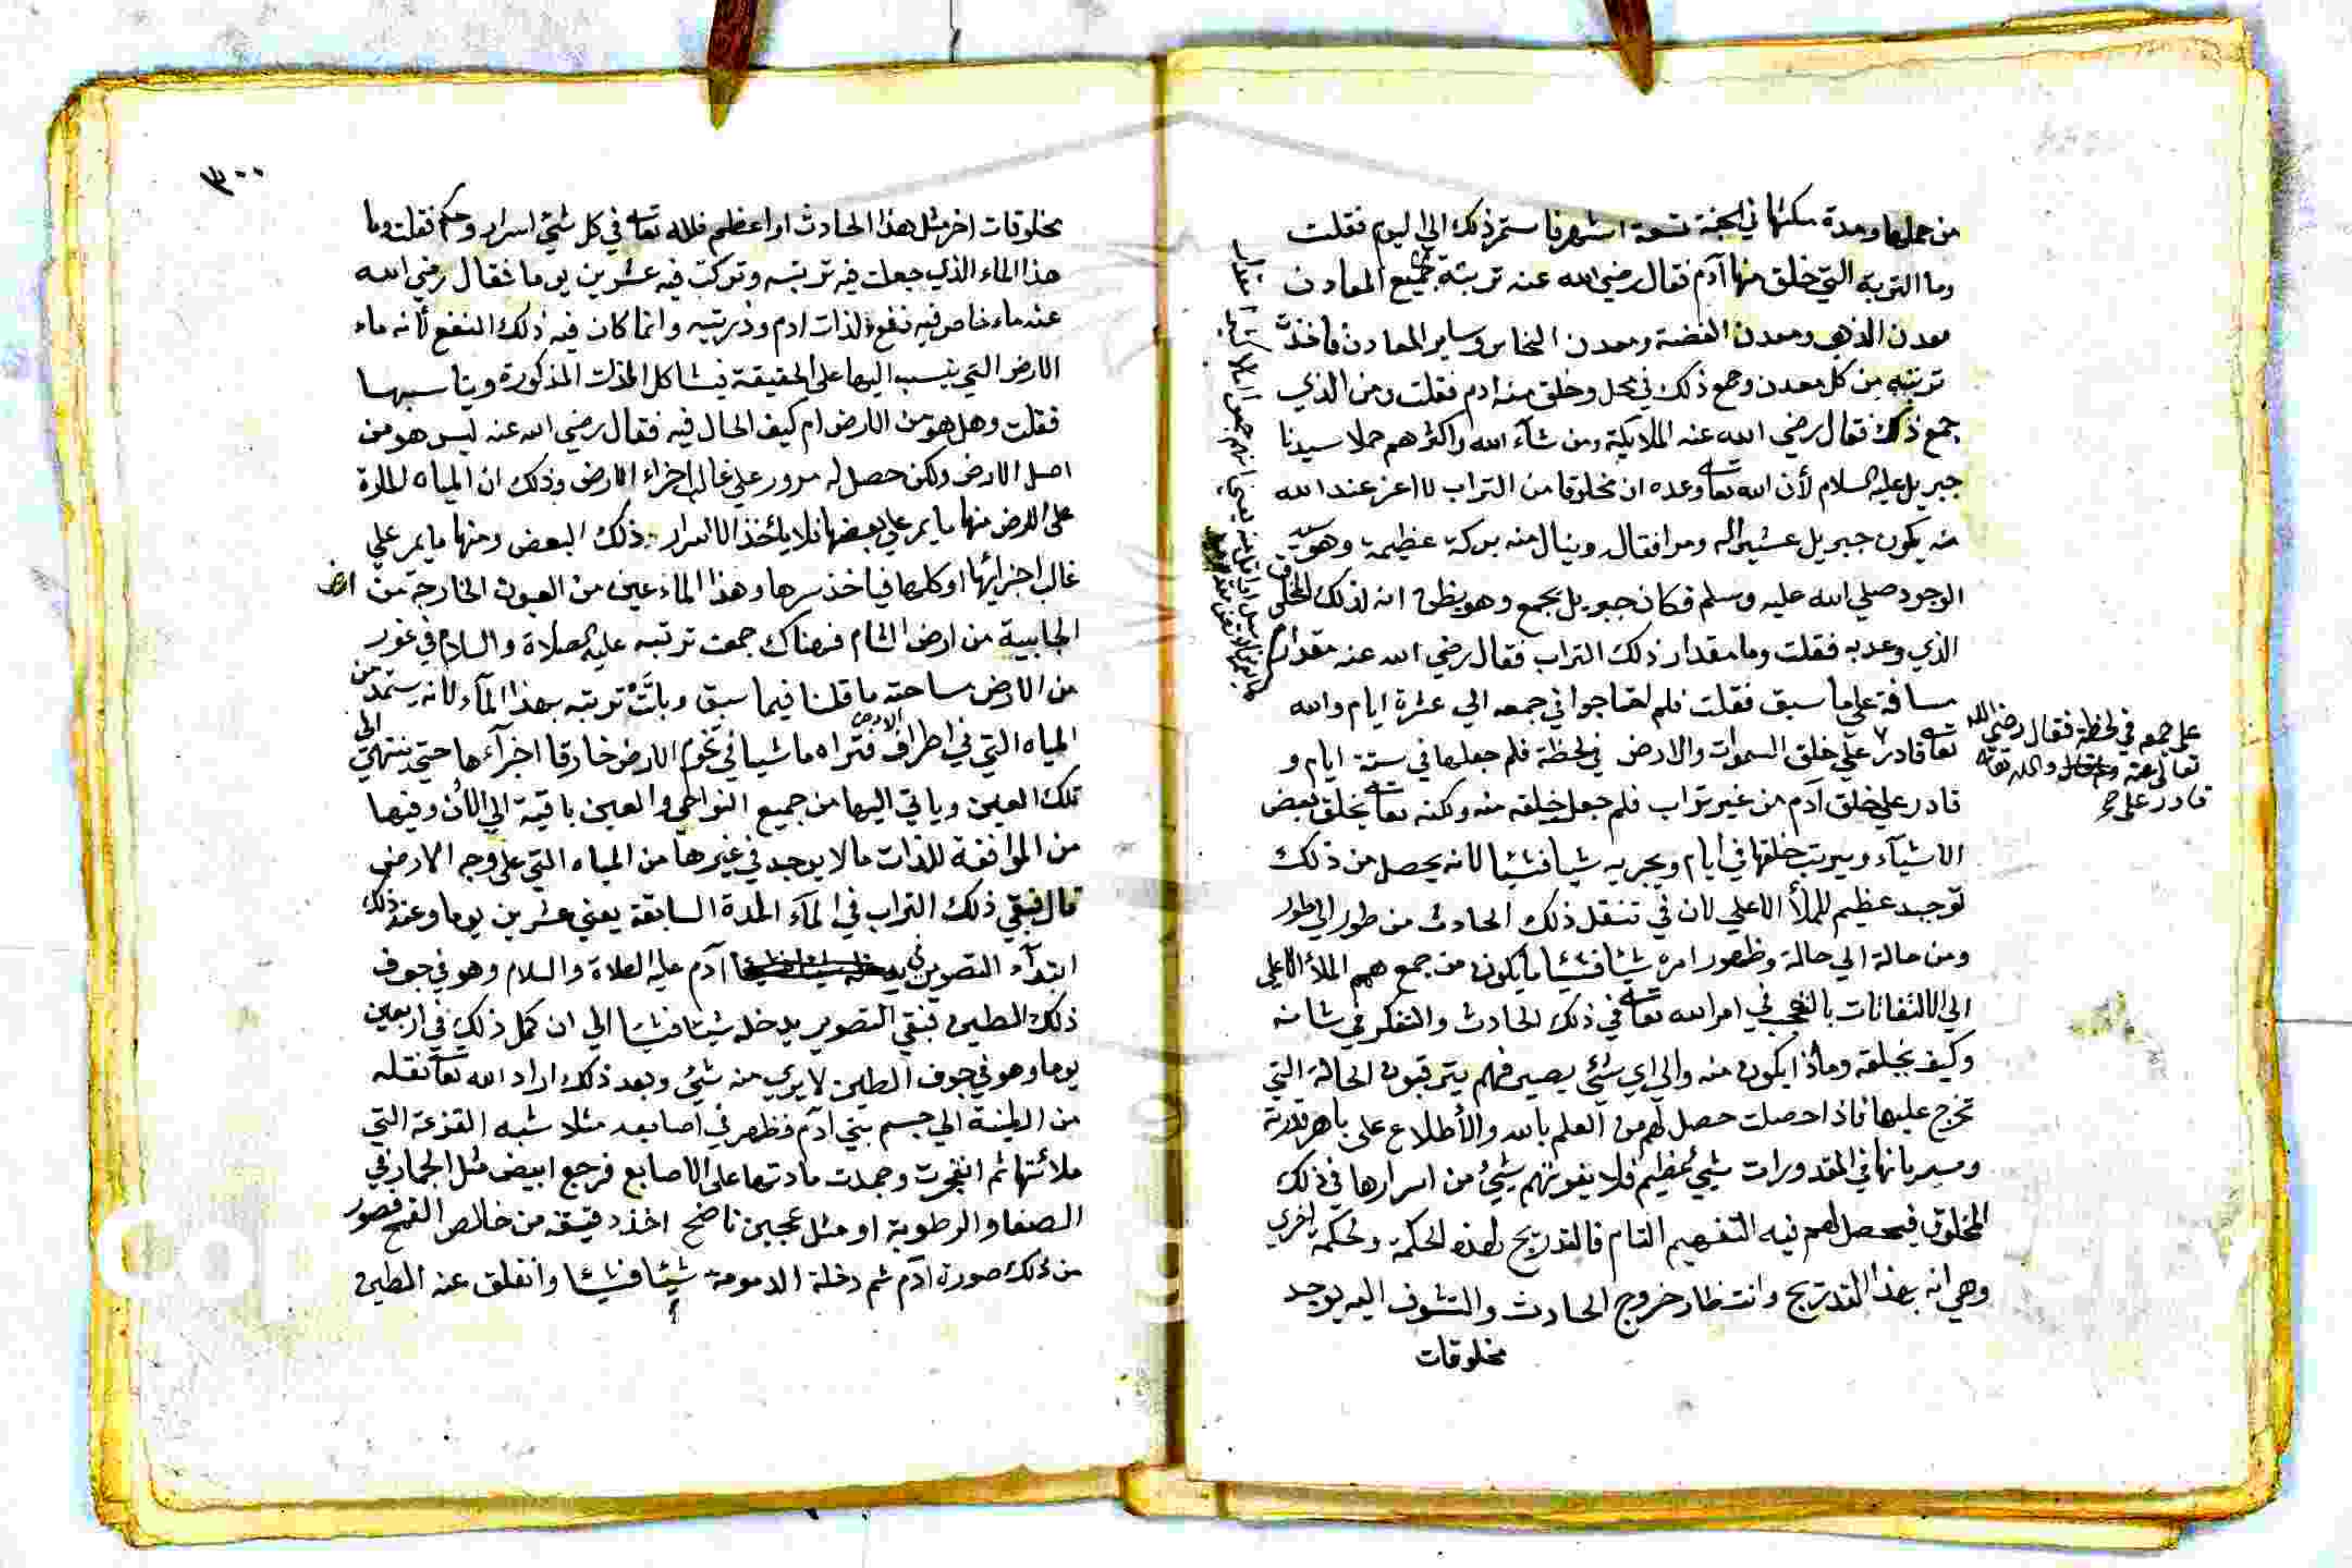 من حملها ومدة مكثها في الجنة تسعة اشهر فاستمر ذلك الي اليوم فقلت
وما التربة التي خلق منها آدم فقال رضي الله عنه تربته جميع المعادن
معدن الذهب ومعدن الفضة ومعدن النحاس وساير المعادن فاخذت
تربته من كل معدن وجمع ذلك في محل وخلق منه ادم فقلت ومن الذي
جمع ذلك فقال رضي الله عنه الملايكة ومن شآء الله واكثرهم حملا سيدنا
جبريل عليه السلام لأن الله تعا وعده ان مخلوقا من التراب لا اعز عند الله
منه يكون جبريل عشيرا له ومرافقا له وينال منه بركة عظيمة وهو سيد
الوجود صلي الله عليه وسلم فكان جبريل يجمع وهو يظن انه لذلك المخلوق
الذي وعد به فقلت وما مقدار ذلك التراب فقال رضي الله عنه مقدار
مسافة علي ما سبق فقلت فلم احتاجوا في جمعه الي عشرة ايام والله
تعا قادر علي خلق السموات والارض في لحظة فلم جعلها في ستة ايام و
قادر علي خلق آدم من غير تراب فلم جعل خلقه منه ولكنه تعا يخلق بعض
الاشيآء ويرتب خلقها في ايام ويجريه شيا فشيئا لانه يحصل من ذلك
توحيد عظيم للملأ الاعلي لان في تنقل ذلك الحادث من طور الي طور
ومن حالة الي حالة وظهور امره شيئا فشيئا ما يكون من جمع همم الملأ الاعلي
الي الالتفاتات بالتعجب في امر الله تعا في ذلك الحادث والتفكر في شانه
وكيف يخلقه وماذا يكون منه والي اي شيئ يصير فهم يترقبون الحالة التي
تخرج عليها فاذا حصلت حصل لهم من العلم بالله والأطلاع علي باهر قدرته
وسريانها في المقدورات شيئ عظيم فلا يفوتهم شيئ من اسرارها في ذلك
المخلوق فيحصل لهم فيه التفهيم التام فالتدريج لهذه الحكمة ولحكمة اخري
وهي انه بهذا التدريج وانتظار خروج الحادث والتشوف اليه يوجد
مخلوقات
علي جمعه في لحظة فقال رضي الله
تعالي عنه والله تعا
قادر علي
٣٠٠
مخلوقات اخر مثل هذا الحادث او اعظم فلله تعا في كل شيئ اسرار وحكم فقلت وما
هذا الماء الذي جعلت فيه تربته وتركت فيه عشرين يوما فقال رضي الله
عنه ماء خاص فيه نفع لذات ادم وذريته وانما كان فيه ذلك النفع لأنه ماء
الارض التي ينسب اليها علي الحقيقة فيشاكل الذات المذكورة ويناسبها
فقلت وهل هو من الارض ام كيف الحال فيه فقال رضي الله عنه ليس هو من
اصل الارض ولكن حصل له مرور علي غالب اجزاء الارض وذلك ان المياه المارة
علي الارض منها ما يمر علي بعضها فلا يأخذ الا اسرار ذلك البعض ومنها ما يمر علي
غالب اجزائها او كلها فياخذ سرها وهذا الماء عين من العيون الخارجة من ارض
الجابية من ارض الشام فهناك جمعت تربته عليه الصلاة والسلام في غور
من الارض مساحته ما قلنا فيما سبق وباتت تربته بهذا المآء لانه يستمد من
المياه التي في اطراف الارض فتراه ماشيا في تخوم الارض خارقا اجزآءها حتي ينتهي الي
تلك العين وياتي اليها من جميع النواحي والعين باقية الي الأن وفيها
من الموافقة للذات ما لا يوجد في غيرها من المياه التي علي وجه الارض
قال فبقي ذلك التراب في المآء المدة السابقة يعني عشرين يوما وعند ذلك
ابتدآء التصوير في آدم عليه الصلاة والسلام وهو في جوف
ذلك الطين فبقي التصوير يدخله شيئا فشيئا الي ان كمل ذلك في اربعين
يوما وهو في جوف الطين لا يري منه شيئ وبعد ذلك اراد الله تعا نقله
من الطينة الي جسم بني آدم فظهر في اصابعه مثلا شبه القزعة التي
ملائتها ثم انفجرت وجمدت مادتها علي الاصابع فرجع ابيض مثل الجمار في
الصفا والرطوبة او مثل عجين ناضح اخذ دقيقه من خالص القمح فصور
من ذلك صورة آدم ثم دخلة الدمومة شيئا فشيئا وانفلق عنه الطين